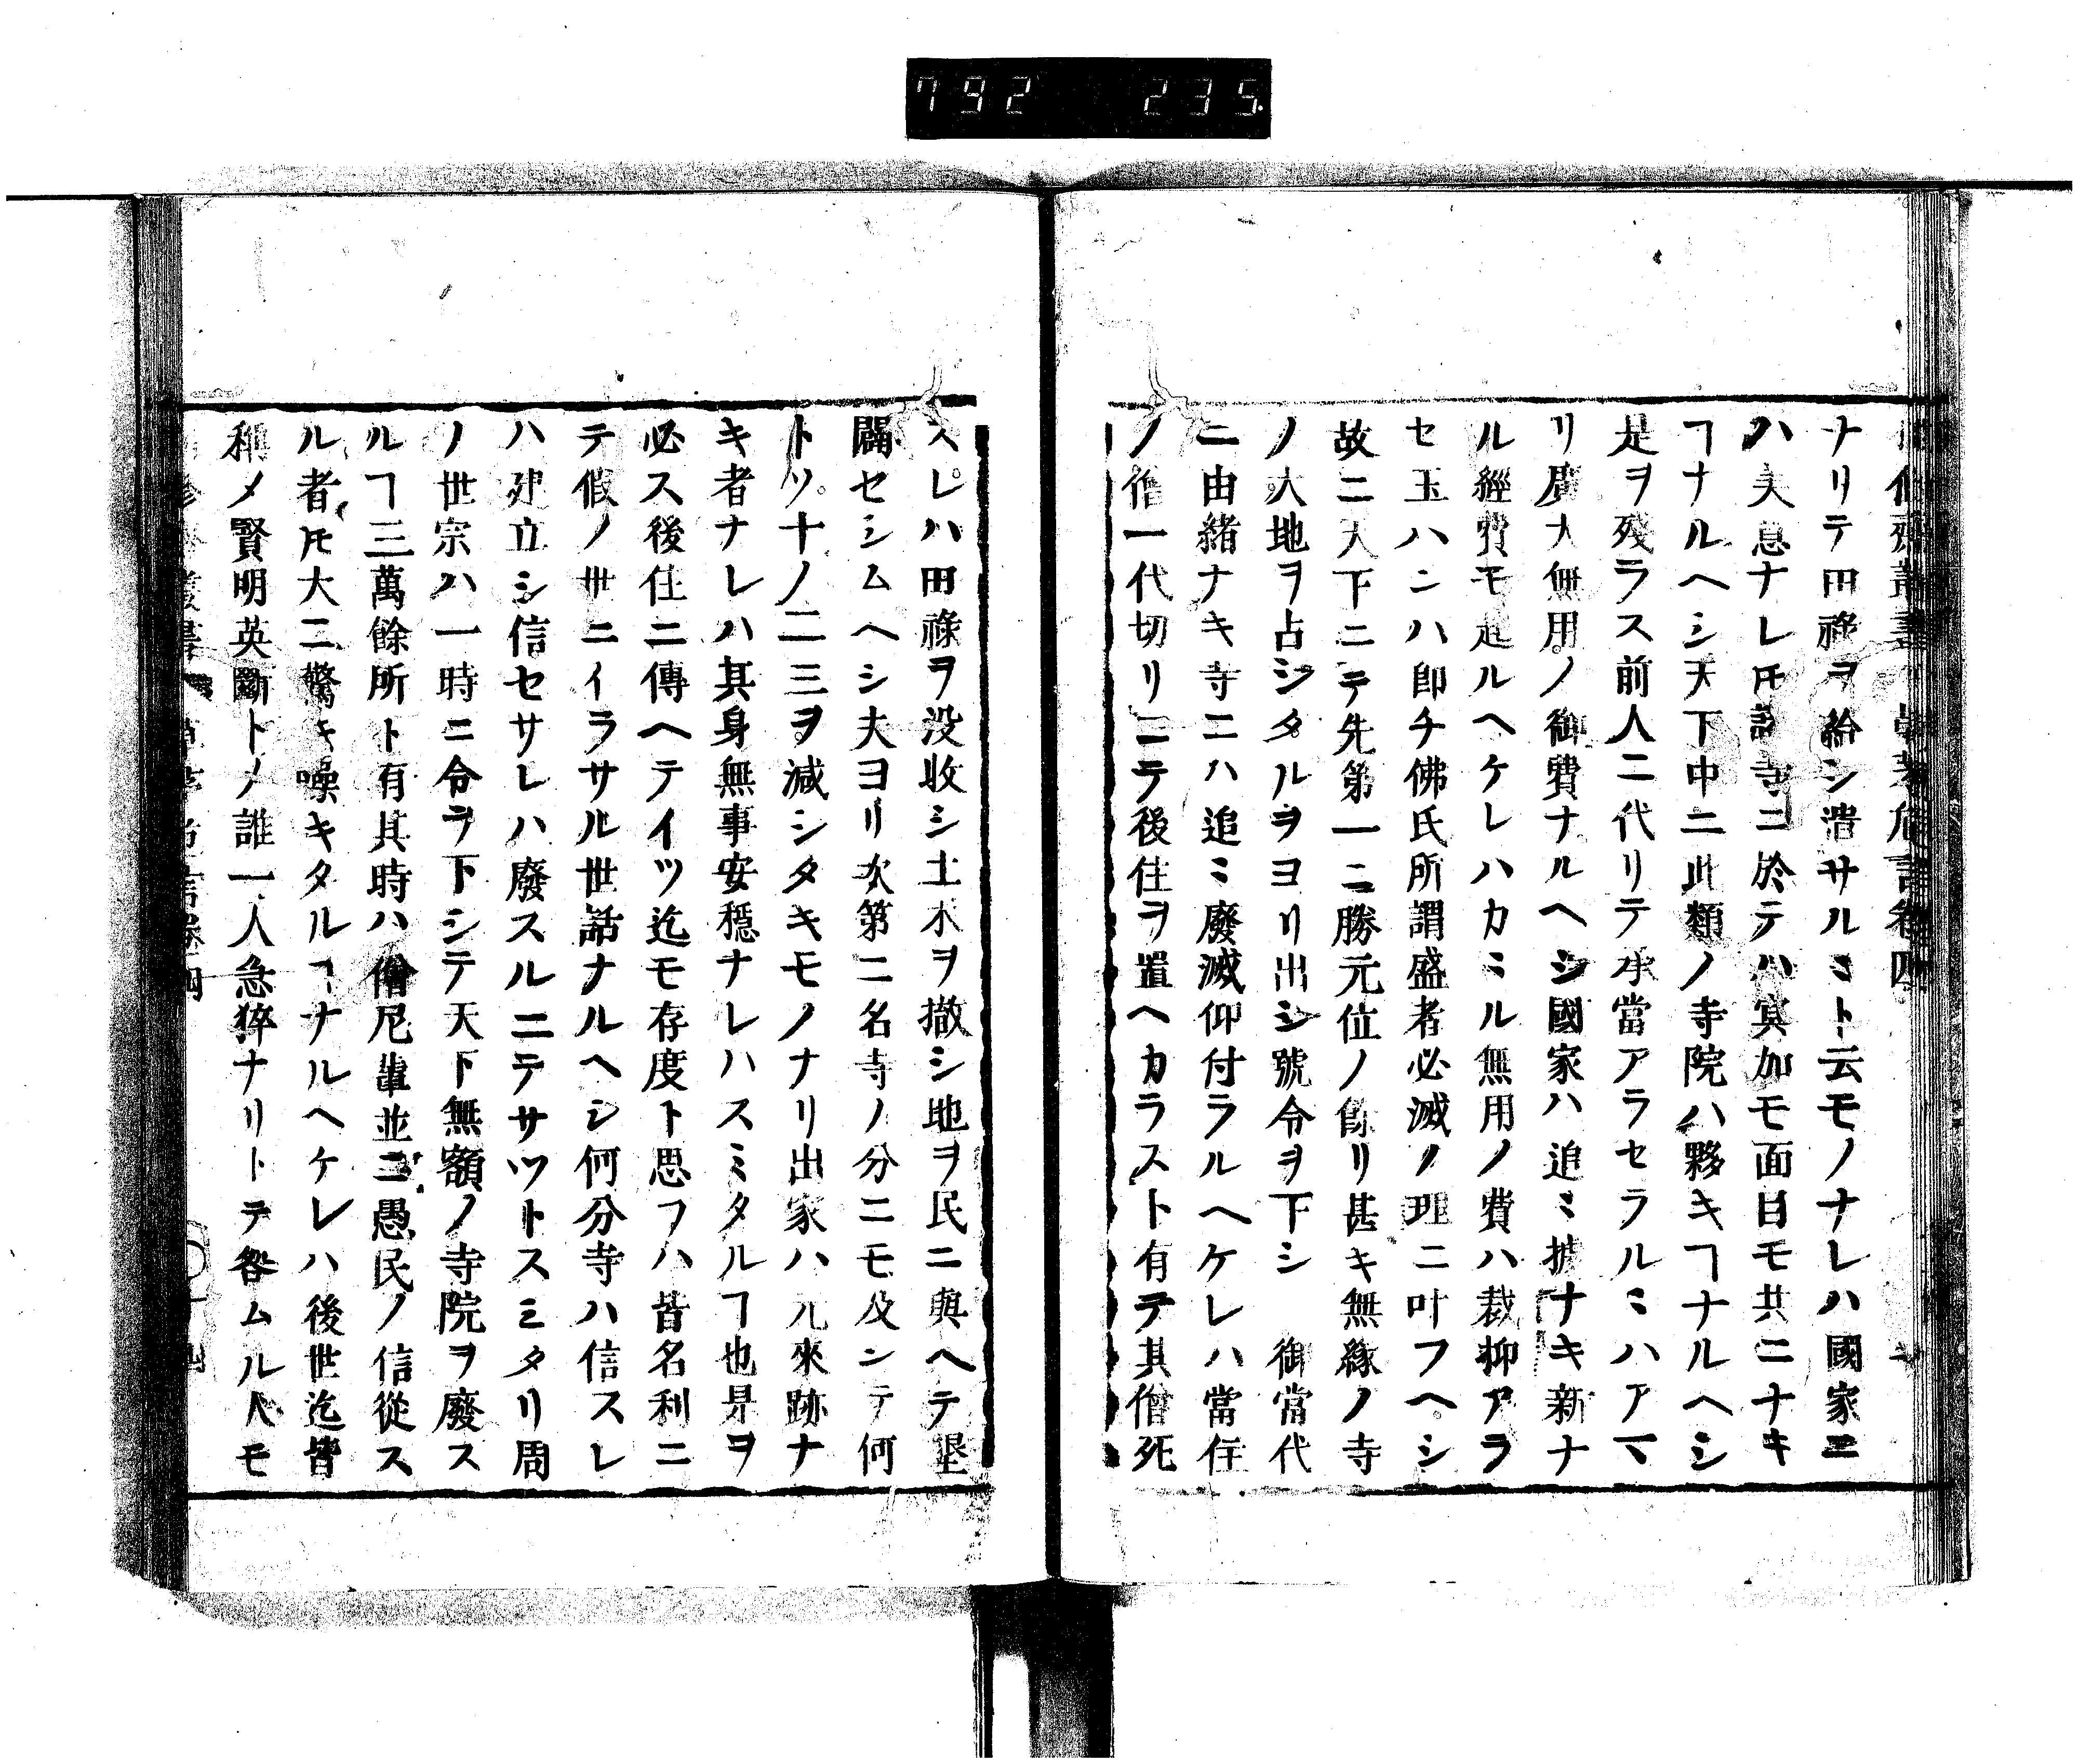 792 235
ナリテ田祿ヲ給シ漕サルミト云モノナレハ國家ニ
ハ大息ナレ𪜈諸寺ニ於テハ冥加モ面目モ共ニナキ
ヿナルヘシ天下中ニ此類ノ寺院ハ夥キヿナルヘシ
是ヲ殘ラス前人ニ代リテ承當アラセラルミハアマ
リ廣大無用ノ御費ナルヘシ國家ハ追ミ據ナキ新ナ
ル經費モ起ルヘケレハカミル無用ノ費ハ裁抑アラ
セ玉ハンハ即チ佛氏所謂盛者必滅ノ理ニ叶フヘシ
故ニ天下ニテ先第一ニ勝元位ノ餘リ甚キ無緣ノ寺
ノ大地ヲ占シタルヲヨリ出シ號令ヲ下シ 御當代
ニ由緒ナキ寺ニハ追ミ廢滅仰付ラルヘケレハ當住
ノ僧一代切リニテ後住ヲ置ヘカラスト有テ其僧死
スレハ田祿ヲ没收シ土木ヲ撤シ地ヲ民ニ與ヘテ墾
闢セシムヘシ夫ヨリ次第ニ名寺ノ分ニモ及ンテ何
トソ十ノ二三ヲ減シタキモノナリ出家ハ元來跡ナ
キ者ナレハ其身無事安穩ナレハスミタルヿ也是ヲ
必ス後住ニ傳ヘテイツ迄モ存度ト思フハ皆名利ニ
テ假ノ世ニイラサル世話ナルヘシ何分寺ハ信スレ
ハ建立シ信セサレハ廢スルニテサツトスミタリ周
ノ世宗ハ一時ニ令ヲ下シテ天下無額ノ寺院ヲ廢ス
ルヿ三萬餘所ト有其時ハ僧尼輩並ニ愚民ノ信從ス
ル者𪜈大ニ驚キ噪キタルヿナルヘケレハ後世迄皆
稱メ賢明英斷トノ誰一人急猝ナリトテ咎ムル人モ